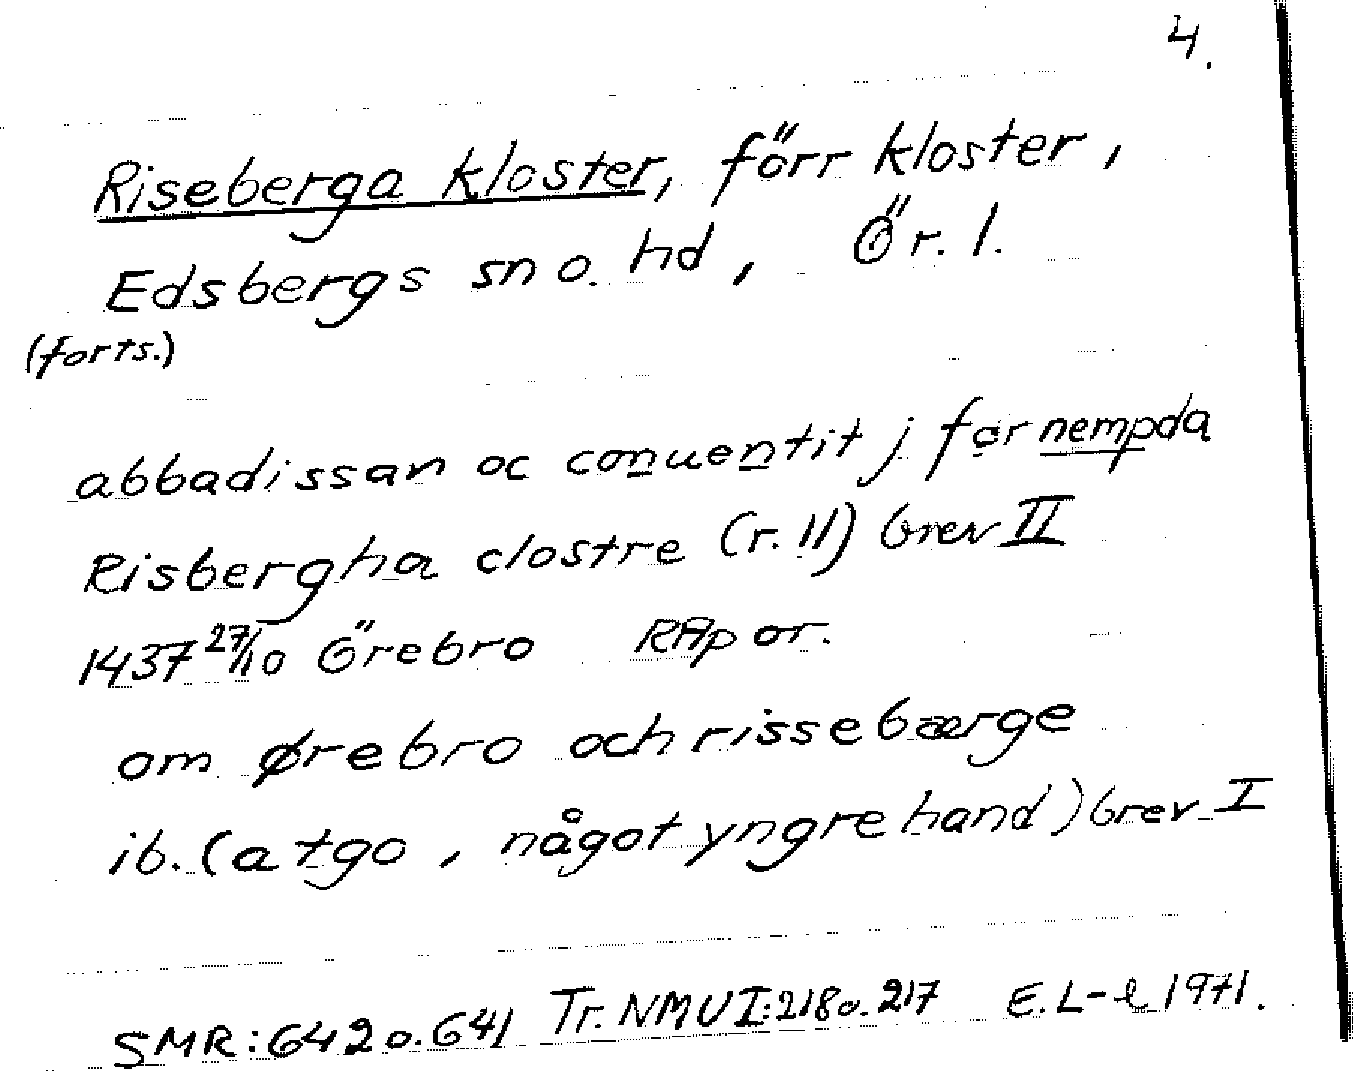 4.
Riseberga kloster, förr kloster,
Edsbergs sn o. hd, Ör. l.
(forts.)
abbadissan oc conuentit j fornempda
Risbergha clostre (r. 11) brev II
1437 27/10 Örebro RAp or.
om ørebro och rissebærge
ib. (a tgo, något yngre hand) brev I
SMR: 642 o. 641 Tr. NMU I: 218 o. 217 E. L-l 1971.